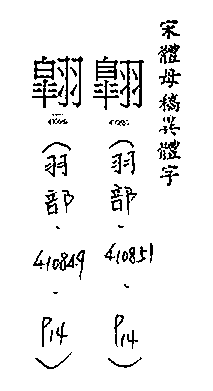 宋體母稿異體字
(羽部.410851.P14)
(羽部.410849.P14)